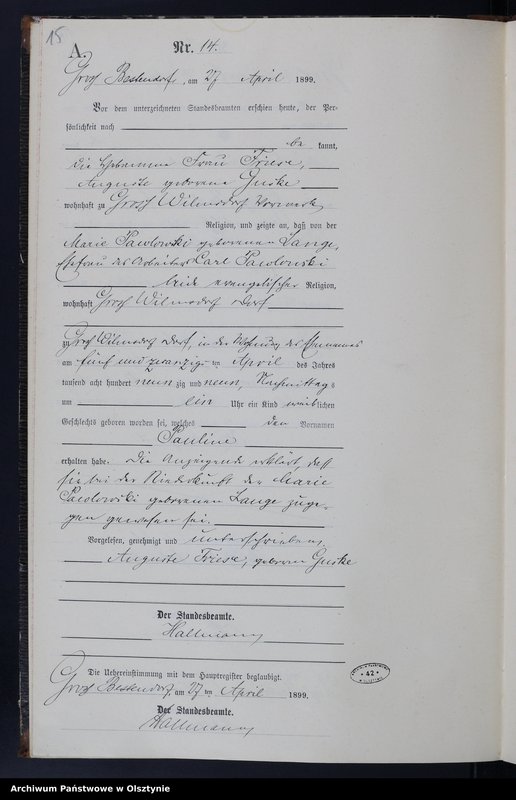 15
A.
Nr. 14.
Groß Bestendorf, am 27 April 1899.
Vor dem unterzeichneten Standesbeamten erschien heute, der Per-
sönlichkeit nach
be kannt,
die Hebamme Frau Friese,
Auguste geborene Guske
wohnhaft zu Groß Wilmsdorf Vorwerk,
Religion, und zeigte an, daß von der
Marie Pawlowski geborenen Lange,
Ehefrau des Arbeiters Carl Pawlowski
beide evangelischer Religion,
wohnhaft Groß Wilmsdorf Dorf
zu Groß Wilmsdorf Dorf, in der Wohnung des Ehemannes
am fünf und zwanzigsten April des Jahres
tausend acht hundert neun zig und neun, Nachmittags
um ein Uhr ein Kind weiblichen
Geschlechts geboren worden sei, welches den Vornamen
Pauline
erhalten habe. Die Anzeigende erklärt, daß
sie bei der Niederkunft der Marie
Pawlowski geborenen Lange zuge-
gen gewesen sei.
Vorgelesen, genehmigt und unterschrieben
Auguste Friese, geborene Guske
Der Standesbeamte.
Hallmann
Die Uebereinstimmung mit dem Hauptregister beglaubigt.
Groß Bestendorf, am 27 ten April 1899.
Der Standesbeamte.
Hallmann
42
Archiwum Państwowe w Olsztynie